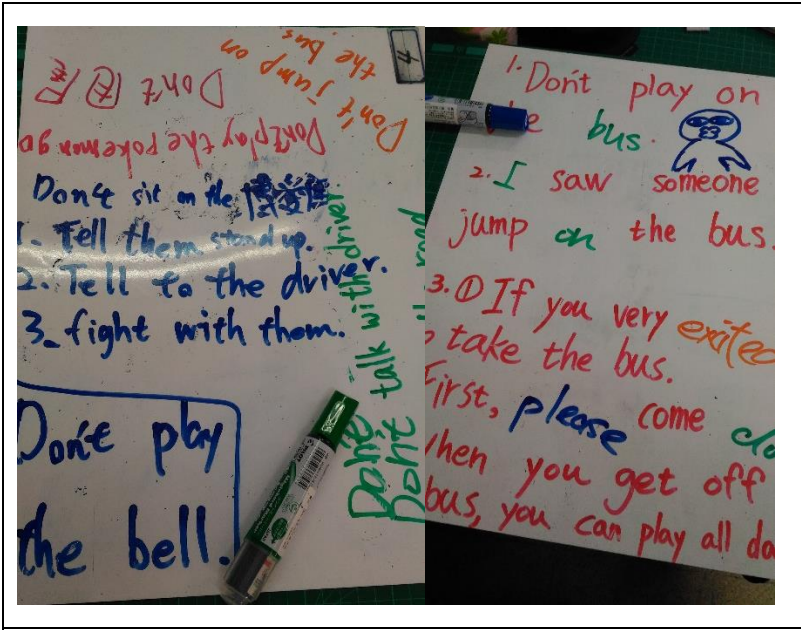 4
Don't jump on
the bus
Don't
Don't play the pokemon go
Don't sit on the
1. Tell them stand up.
2. Tell to the driver.
3. fight with them.
Don't play
the bell.
Don't talk with driver.
Don't
road
1. Don't play on
the bus.
2. I saw someone
jump on the bus.
3. ① If you very exited
take the bus.
First, please come
When you get off
bus, you can play all da